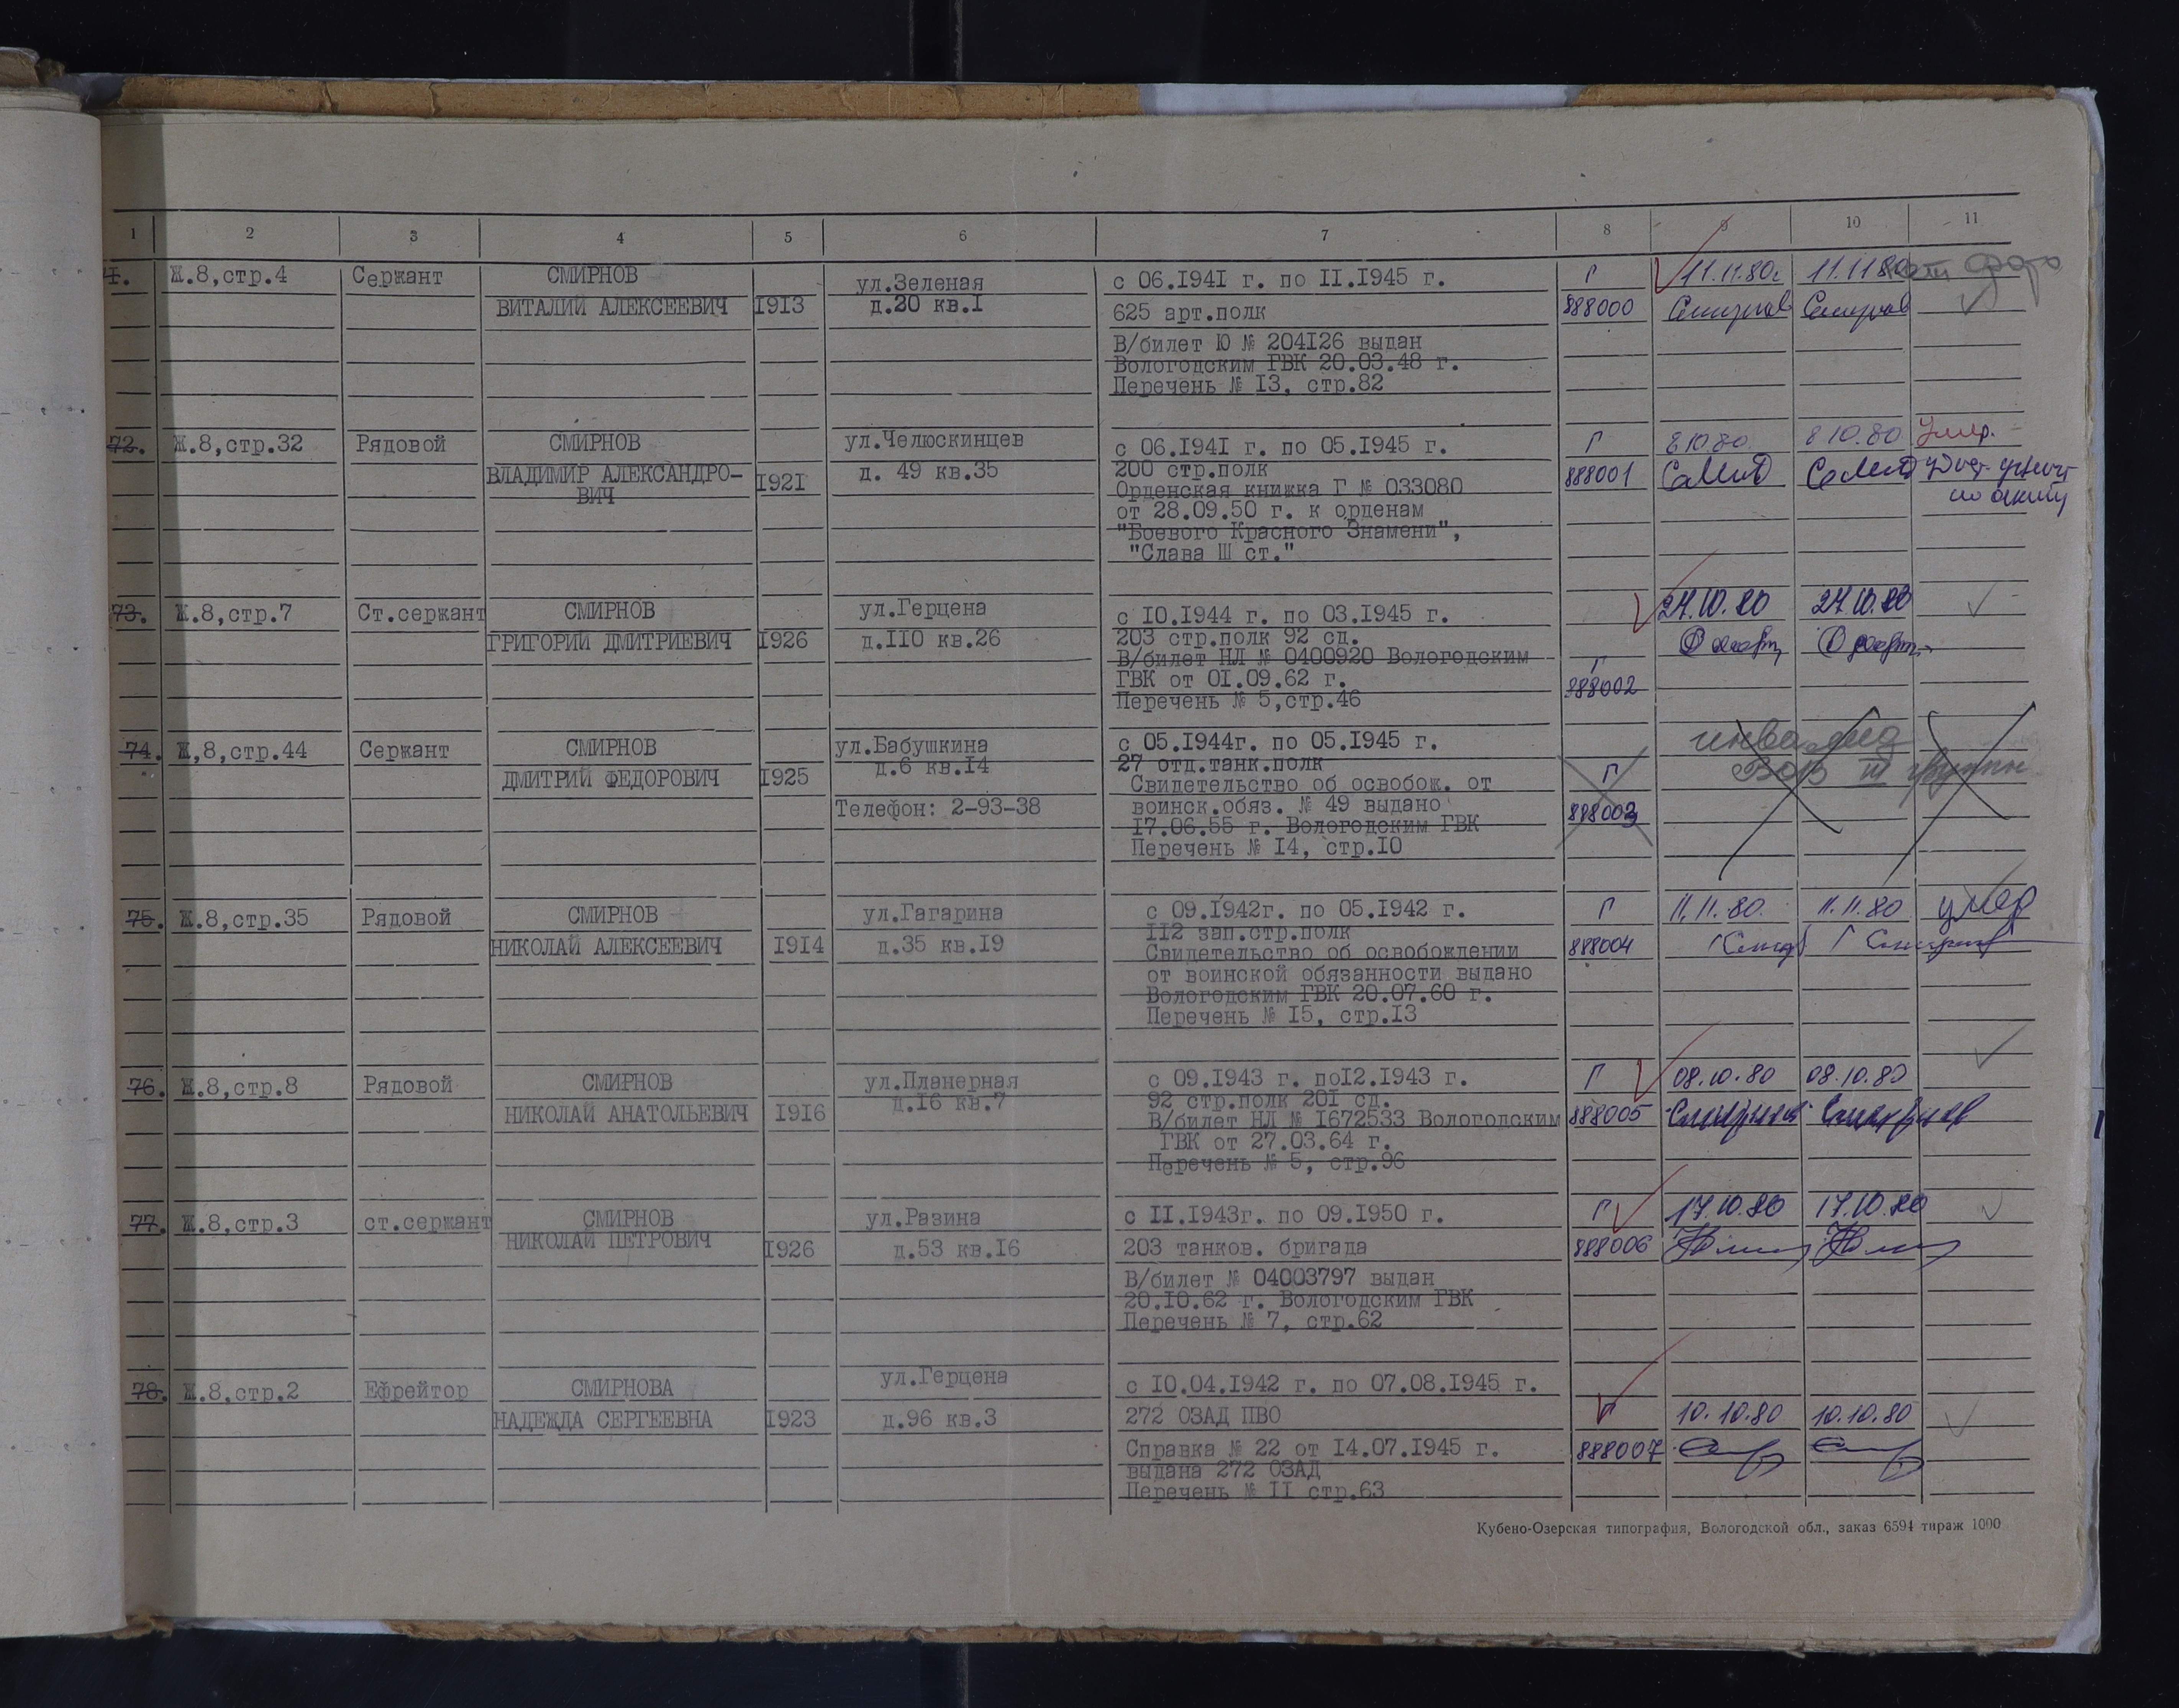 1 2 3 4 5 6 7 8 9 10 11
Ж.8,стр.4 Сержант СМИРНОВ ул.Зеленая с 06.1941 г. по 11.1945 г. Г 11.11.80г 11.11.80 фото
ВИТАЛИЙ АЛЕКСЕЕВИЧ 1913 д.20 кв.1 625 арт.полк 888000 Смирнов Смирнов
В/билет Ю № 204126 выдан
Вологодским ГВК 20.03.48 г.
Перечень № 13, стр.82
72. Ж.8,стр.32 Рядовой СМИРНОВ ул.Челюскинцев с 06.1941 г. по 05.1945 г. Г 8.10.80 8.10.80 Умер.
ВЛАДИМИР АЛЕКСАНДРО- 1921 д. 49 кв.35 200 стр.полк 888001
ВИЧ Орденская книжка Г № 033080
от 28.09.50 г. к орденам
"Боевого Красного Знамени",
"Слава Ш ст."
73. Ж.8,стр.7 Ст.сержант СМИРНОВ ул.Герцена с 10.1944 г. по 03.1945 г. 24.10.80 24.10.80
ГРИГОРИЙ ДМИТРИЕВИЧ 1926 д.110 кв.26 203 стр.полк 92 сд.
В/билет НЛ № 0400920 Вологодским Г
ГВК от 01.09.62 г. 888002
Перечень № 5,стр.46
74. Ж,8,стр.44 Сержант СМИРНОВ ул.Бабушкина с 05.1944г. по 05.1945 г. инвалид
ДМИТРИЙ ФЕДОРОВИЧ 1925 д.6 кв.14 27 отд.танк.полк Г ВОВ III группы
Свидетельство об освобож. от
Телефон: 2-93-38 воинск.обяз. № 49 выдано 888003
17.06.55 г. Вологодским ГВК
Перечень № 14, стр.10
75. Ж.8,стр.35 Рядовой СМИРНОВ ул.Гагарина с 09.1942г. по 05.1942 г. Г 11.11.80. 11.11.80 умер
НИКОЛАЙ АЛЕКСЕЕВИЧ 1914 д.35 кв.19 112 зап.стр.полк 888004
Свидетельство об освобождении
от воинской обязанности выдано
Вологодским ГВК 20.07.60 г.
Перечень № 15, стр.13
76. Ж.8,стр.8 Рядовой СМИРНОВ ул.Планерная с 09.1943 г. по12.1943 г. Г 08.10.80 08.10.80
НИКОЛАЙ АНАТОЛЬЕВИЧ 1916 д.16 кв.7 92 стр.полк 201 сд. 888005 Смирнов Смирнов
В/билет НЛ № 1672533 Вологодским
ГВК от 27.03.64 г.
Перечень № 5, стр.96
77. Ж.8,стр.3 ст.сержант СМИРНОВ ул.Разина с 11.1943г. по 09.1950 г. Г 17.10.80 17.10.80
НИКОЛАЙ ПЕТРОВИЧ 1926 д.53 кв.16 203 танков. бригада 888006
В/билет № 04003797 выдан
20.10.62 г. Вологодским ГВК
Перечень № 7, стр.62
78. Ж.8,стр.2 Ефрейтор СМИРНОВА ул.Герцена с 10.04.1942 г. по 07.08.1945 г. Г
НАДЕЖДА СЕРГЕЕВНА 1923 д.96 кв.3 272 ОЗАД ПВО 10.10.80 10.10.80
Справка № 22 от 14.07.1945 г. 888007
выдана 272 ОЗАД
Перечень № 11 стр.63
Кубено-Озерская типография, Вологодской обл., заказ 6594 тираж 1000